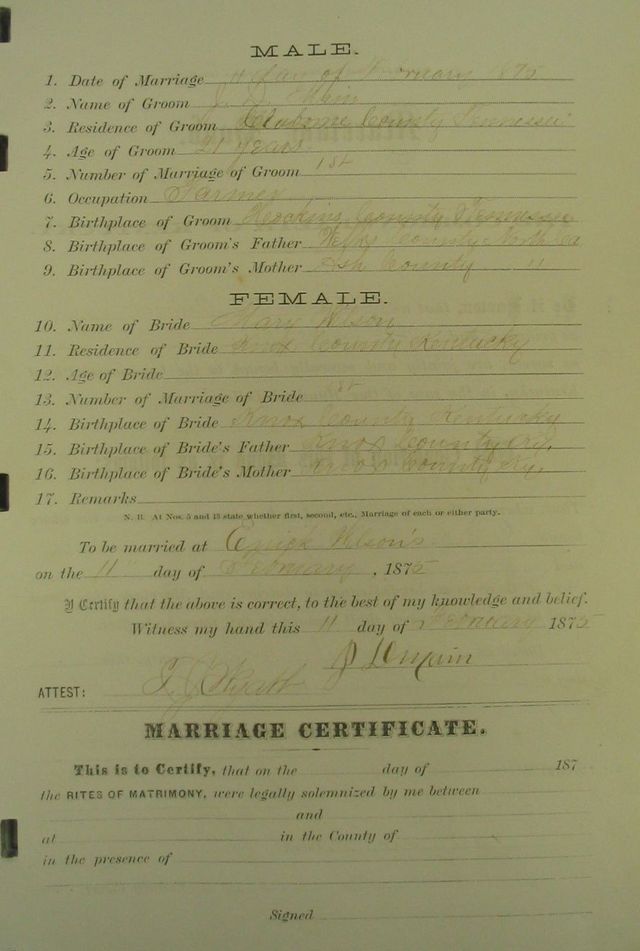 MALE.
1. Date of Marriage 11 day of February 1875
2. Name of Groom J.
3. Residence of Groom Claborne County Tennessee
4. Age of Groom 21 years
5. Number of Marriage of Groom 1st
6. Occupation Farmer
7. Birthplace of Groom County Tennessee
8. Birthplace of Groom's Father County North Ca
9. Birthplace of Groom's Mother Ash County "
FEMALE.
10. Name of Bride Mary Wlson
11. Residence of Bride Knox County Kentucky
12. Age of Bride
13. Number of Marriage of Bride 1st
14. Birthplace of Bride Knox County Kentucky
15. Birthplace of Bride's Father Knox County Ky.
16. Birthplace of Bride's Mother Knox County Ky.
17. Remarks
N. B. At Nos. 5 and 13 state whether first, second, etc., Marriage of each or either party.
To be married at Wlson's
on the 11 day of February, 1875
I Certify that the above is correct, to the best of my knowledge and belief.
Witness my hand this 11 day of February 1875
ATTEST:
MARRIAGE CERTIFICATE.
This is to Certify, that on the day of 187
the RITES OF MATRIMONY, were legally solemnized by me between
and
at in the County of
in the presence of
Signed